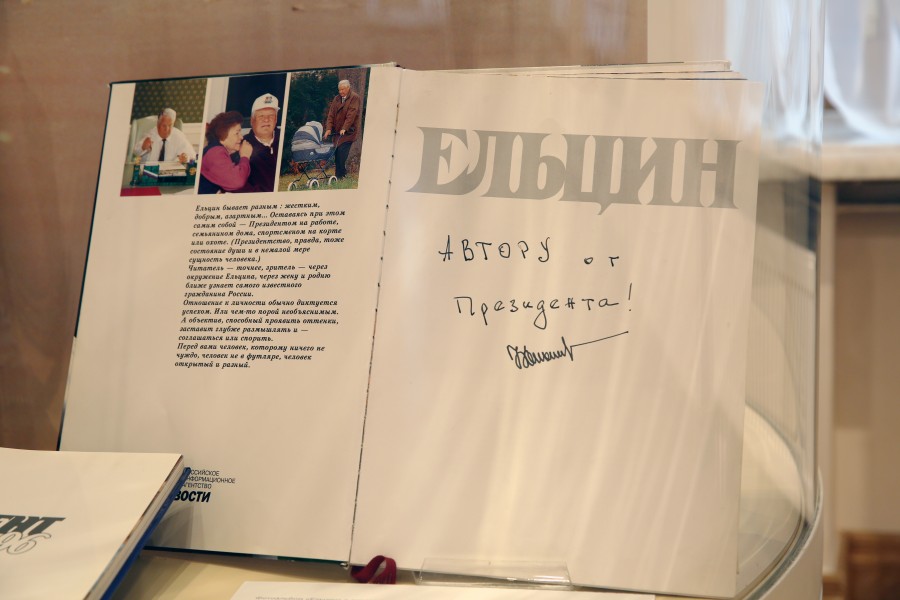 Ельцин бывает разным : жестким,
добрым, азартным... Оставаясь при этом
самим собой — Президентом на работе,
семьянином дома, спортсменом на корте
или охоте. (Президентство, правда, тоже
состояние души и в немалой мере
сущность человека.)
Читатель — точнее, зритель — через
окружение Ельцина, через жену и родню
ближе узнает самого известного
гражданина России.
Отношение к личности обычно диктуется
успехом. Или чем-то порой необъяснимым.
А объектив, способный проявить оттенки,
заставит глубже размышлять и —
соглашаться или спорить.
Перед вами человек, которому ничего не
чуждо, человек не в футляре, человек
открытый и разный.
ЕЛЬЦИН
АВТОРУ от
Президента!